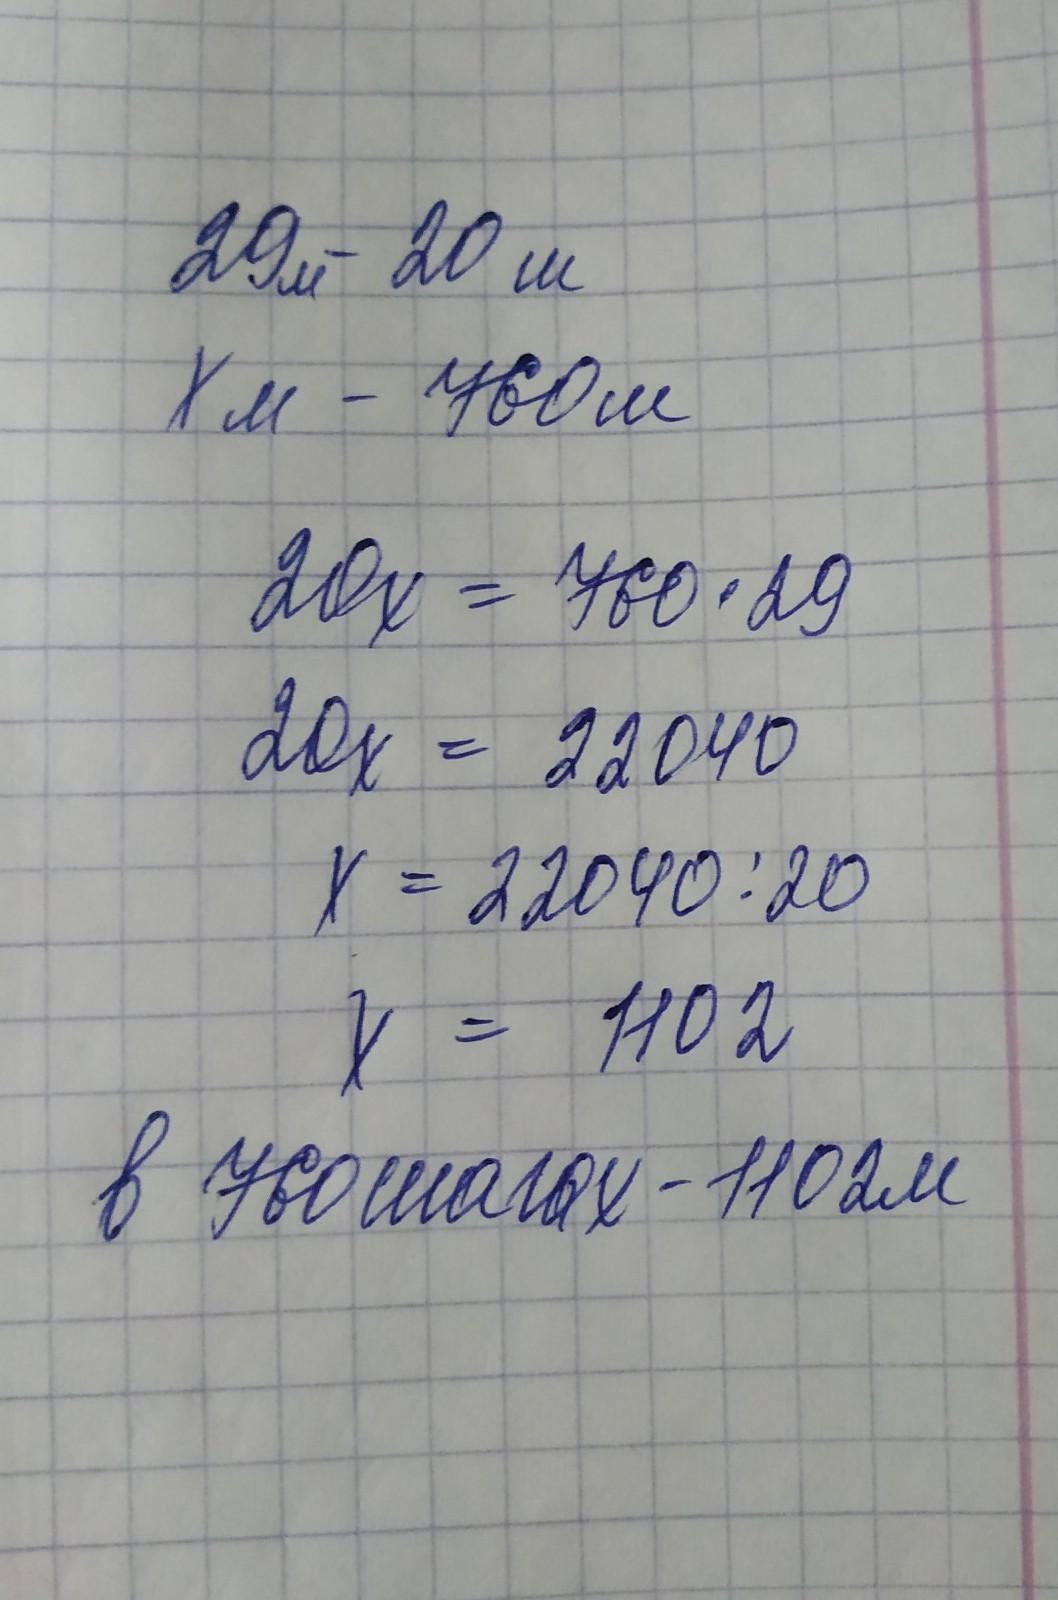 29м - 20 ш
Xм - 760ш
20x = 760·29
20x = 22040
x = 22040:20
x = 1102
в 760шагах - 1102м